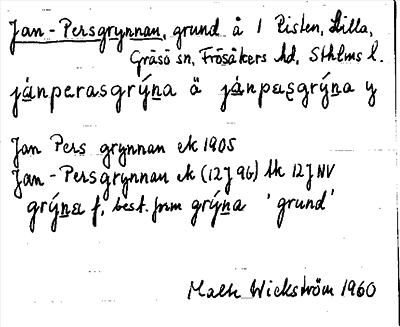 Jan-Persgrynnan, grund å l Risten, Lilla,
Gräsö sn, Frösåkers hd, Sthlms l.
jánperasgrýna ä jánpeɛs̨grýna y
Jan Pers grynnan ek 1905
Jan-Persgrynnan ek (12J 96) lk 12J NV
grýnɛ f, best. form grýna 'grund'
Wickström 1960